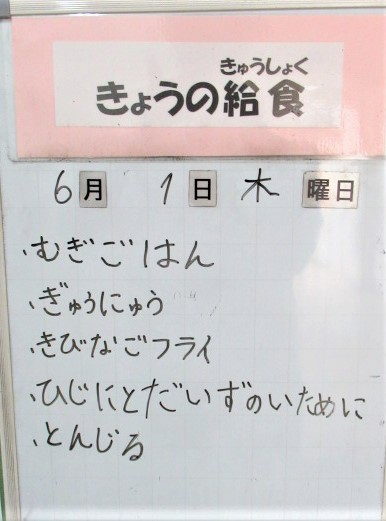 きゅうしょく
きょうの給食
6月 1日 木 曜日
、むぎごはん
、ぎゅうにゅう
、きびなごフライ
、ひじにとだいずのいために
、とんじる